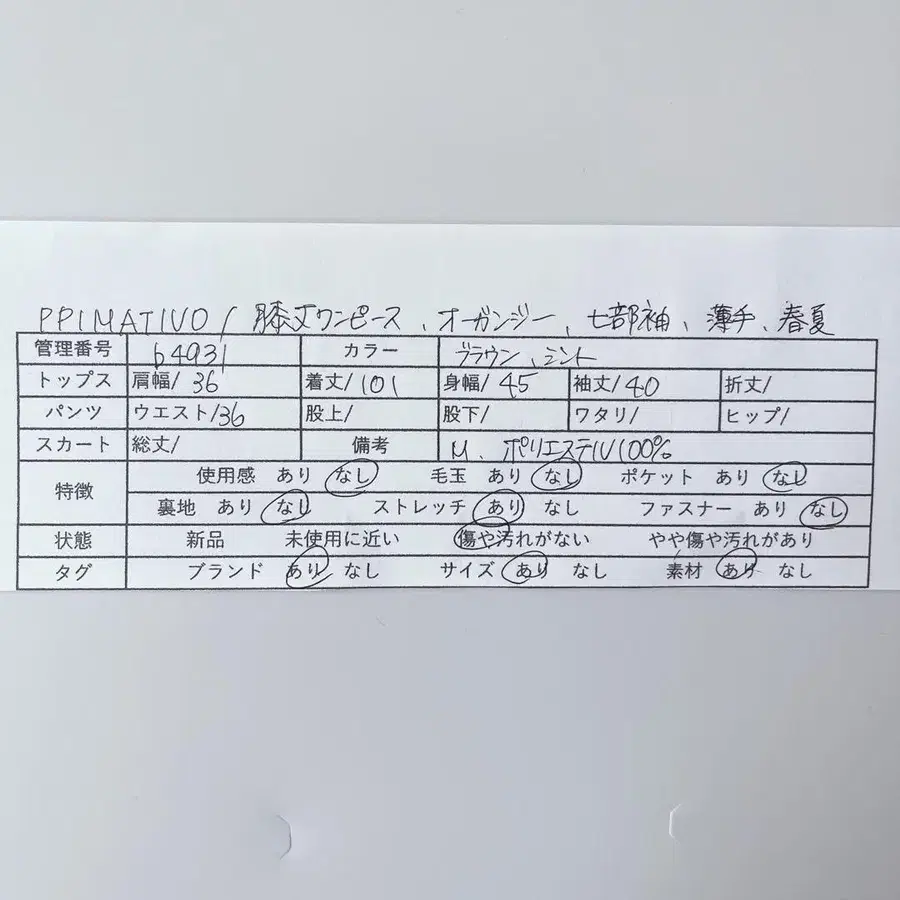 PPIMATIVO / 膝丈ワンピース、オーガンジー、七部袖、薄手、春夏
管理番号 b4931 カラー ブラウン、ミント
トップス 肩幅/ 36 着丈/ 101 身幅/ 45 袖丈/ 40 折丈/
パンツ ウエスト/36 股上/ 股下/ ワタリ/ ヒップ/
スカート 総丈/ 備考 M、ポリエステル100%
特徴 使用感 あり なし 毛玉 あり なし ポケット あり なし
裏地 あり なし ストレッチ あり なし ファスナー あり なし
状態 新品 未使用に近い 傷や汚れがない やや傷や汚れがあり
タグ ブランド あり なし サイズ あり なし 素材 あり なし